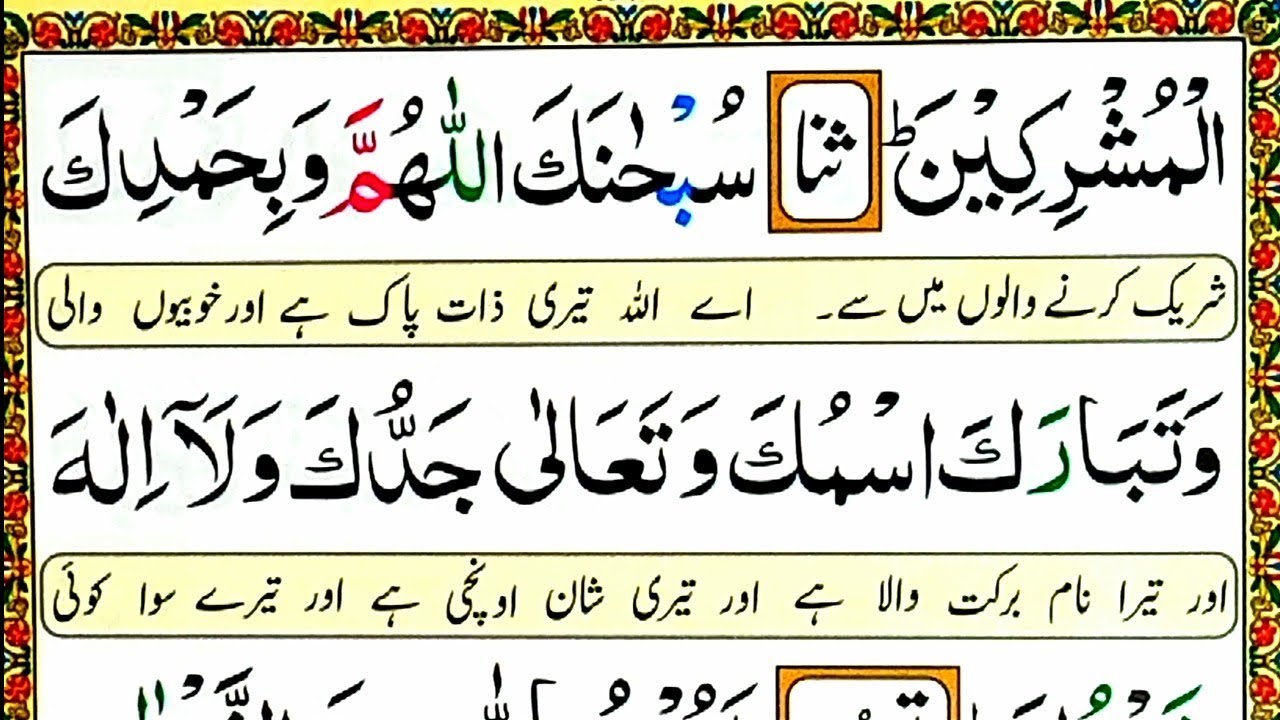 الْمُشْرِكِيْنَ ؕ ثنا سُبْحٰنَكَ اللّٰهُمَّ وَبِحَمْدِكَ
شریک کرنے والوں میں سے۔ اے اللہ تیری ذات پاک ہے اور خوبیوں والی
وَتَبَارَكَ اسْمُكَ وَتَعَالٰى جَدُّكَ وَلَآ اِلٰهَ
اور تیرا نام برکت والا ہے اور تیری شان اونچی ہے اور تیرے سوا کوئی